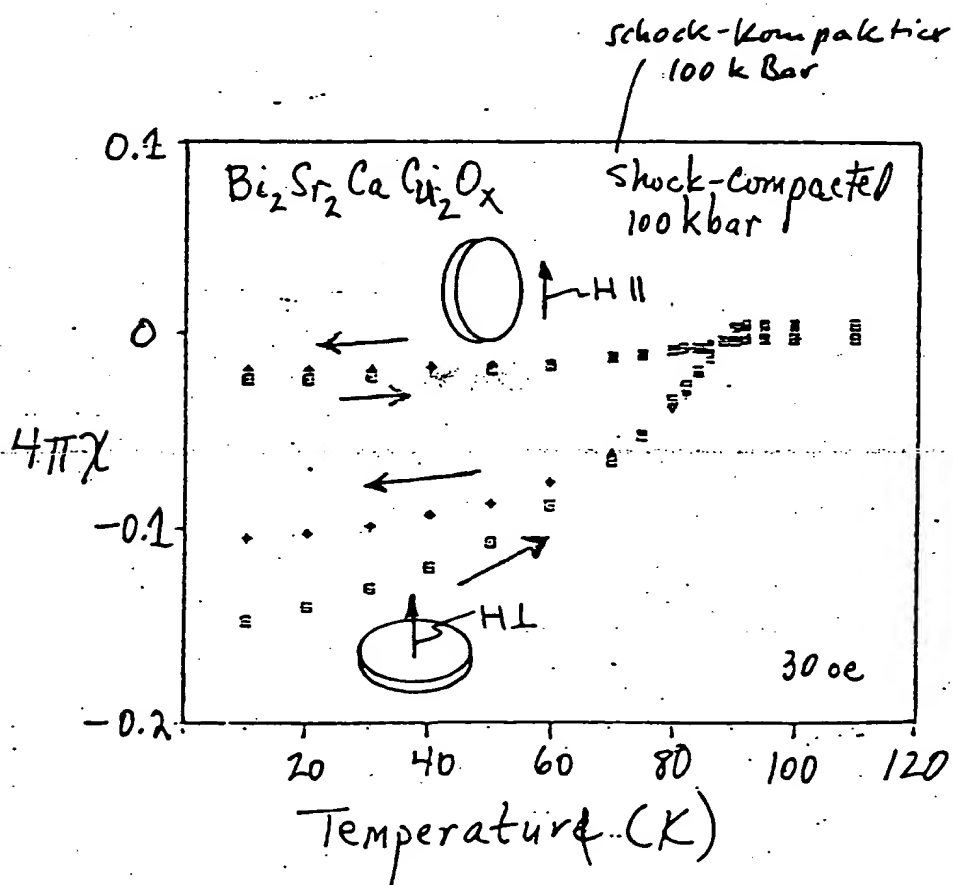 schock-kompaktier
100 k Bar
0.1
Bi₂Sr₂CaCu₂Oₓ
Shock-compacted
100 kbar
H ||
0
4πχ
-0.1
H⊥
30 oe
-0.2
20 40 60 80 100 120
Temperature (K)